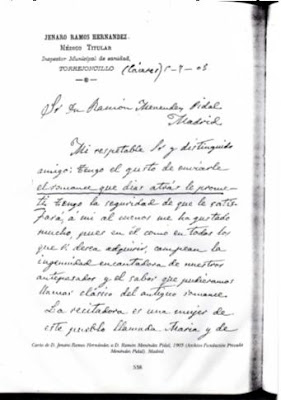 JENARO RAMOS HERNANDEZ.
MÉDICO TITULAR
Inspector Municipal de sanidad,
TORREJONCILLO (Cáceres) 5-9-05
Sr Dn Ramón Menendez Pidal
Madrid
Mi respetable Sr y distinguido
amigo: tengo el gusto de enviarle
el romance que dias atrás le prome-
tí tengo la seguridad de que le satis-
fará, á mi al menos me ha gustado
mucho, pues en él como en todos los
que desea adquirir, campean la
ingenuidad encantadora de nuestros
antepasados y el sabor que pudieramos
llamar clásico del antiguo romance.
La recitadora es una mujer de
este pueblo llamada Maria y de
Carta de D. Jenaro Ramos Hernández a D. Ramón Menéndez Pidal, 1905 (Archivo Fundación Menéndez Pidal). Madrid.